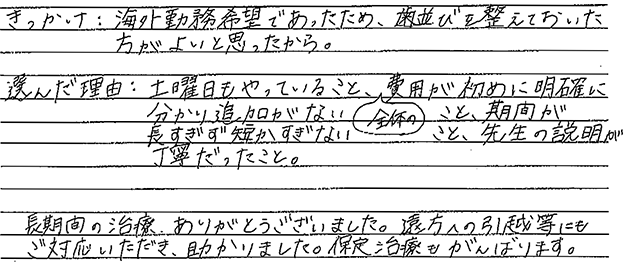 きっかけ：海外勤務希望であったため、歯並びを整えておいた
方がよいと思ったから。
選んだ理由：土曜日もやっていること、費用が初めに明確に
分かり追加がない（全体の）こと、期間が
長すぎず短かすぎない こと、先生の説明が
丁寧だったこと。
長期間の治療、ありがとうございました。遠方への引越等にも
ご対応いただき、助かりました。保定治療もがんばります。